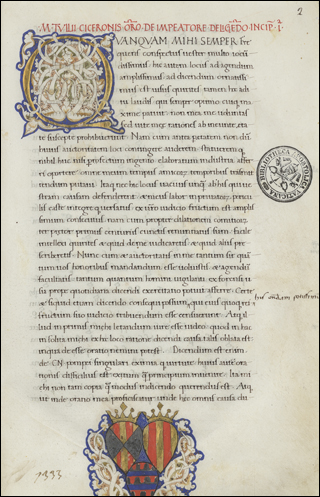 2
M. TVLII CICERONIS ORO DE IMPEATORE DELIGEDO INCIP I
QVANQVAM MIHI SEMPER fre
quens conspectus uester multo iocun
dissimus: hic autem locus ad agendum
amplissimus ad dicendum ornatissi
mus est uisus quirites: tamen hoc adi
tu laudis qui semper optimo cuiq; ma
xime patuit: non mea me uoluntas
sed uite mee rationes ab ineunte eta
te suscepte prohibuerunt. Nam cum antea
huius auctoritatem loci contingere auderem
nihil huc nisi perfectum ingenio elaboratum industria affer
ri oportere: omne meum tempus amicorum temporibus transmit
tendum putaui. Itaq; nec hic locus uacuus
stram causam defenderent: et meus labor in priuatorum pericu
lis caste integreq; uersatus: ex uestro iudicio fructum est amplis
simum consecutus. nam cum propter dilationem comitiorum
ter pretor primus centuriis cunctis renuntiatus sum: facile
intellexi quirites et quid de me iudicaretis et quid aliis pre
scriberetis. Nunc cum et auctoritatis in me tantum sit quan
tum uos honoribus mandandis esse uoluistis: et ad agendum
facultatis tantum quantum homini uigilanti ex forensi u
su prope quotidiana dicendi exercitatio potuit afferre: Certe
et siquid etiam dicendo consequi possum
fructum suo iudicio tribuendum esse censuerunt. Atq; il
lud in primis michi letandum iure esse uideo quod in hac in
solita michi ex hoc loco ratione dicendi causa talis oblata est
in qua deesse oratio nemini potest. Dicendum est enim
de CN. pompei singulari eximiaq; uirtute: huius autem ora
tionis difficilius est exitum quam principium inuenire. Ita mi
chi non tam copia quam modus in dicendo querendus est. Atq;
ut inde oratio mea proficiscatur: unde hec omnis causa du
BIBLIOTHECA APOSTOLICA VATICANA
1333